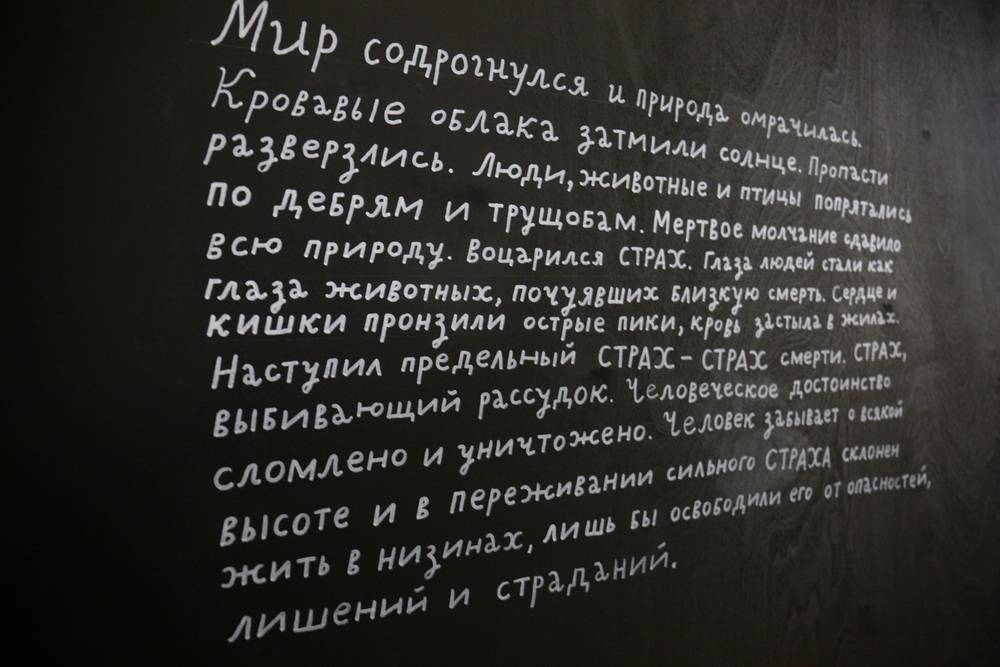 Мир содрогнулся и природа омрачилась.
Кровавые облака затмили солнце. Пропасти
разверзлись. Люди, животные и птицы попрятались
по дебрям и трущобам. Мертвое молчание сдавило
всю природу. Воцарился СТРАХ. Глаза людей стали как
глаза животных, почуявших близкую смерть. Сердце и
кишки пронзили острые пики, кровь застыла в жилах.
Наступил предельный СТРАХ – СТРАХ смерти. СТРАХ,
выбивающий рассудок. Человеческое достоинство
сломлено и уничтожено. Человек забывает о всякой
высоте и в переживании сильного СТРАХА склонен
жить в низинах, лишь бы освободили его от опасностей,
лишений и страданий.